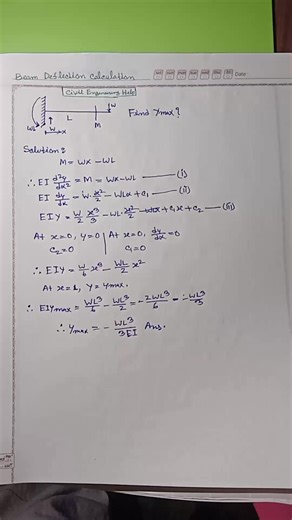 Beam Deflection Calculation
Date:
Civil Engineering Help
W
L
M
WL
W
x
Find Ymax?
Solution:
M = Wx - WL
∴ EI d²y/dx² = M = Wx - WL —(i)
EI dy/dx = W·x²/2 - WLx + C₁ —(ii)
EIY = W/2 x³/3 - WL·x²/2 + C₁x + C₂ —(iii)
At x=0, Y=0 | At x=0, dy/dx = 0
C₂=0 C₁=0
∴ EIY = W/6 x³ - WL/2 x²
At x=L, Y = Ymax.
∴ EIYmax = WL³/6 - WL³/2 = -2WL³/6 = -WL³/3
∴ Ymax = - WL³/3EI Ans.